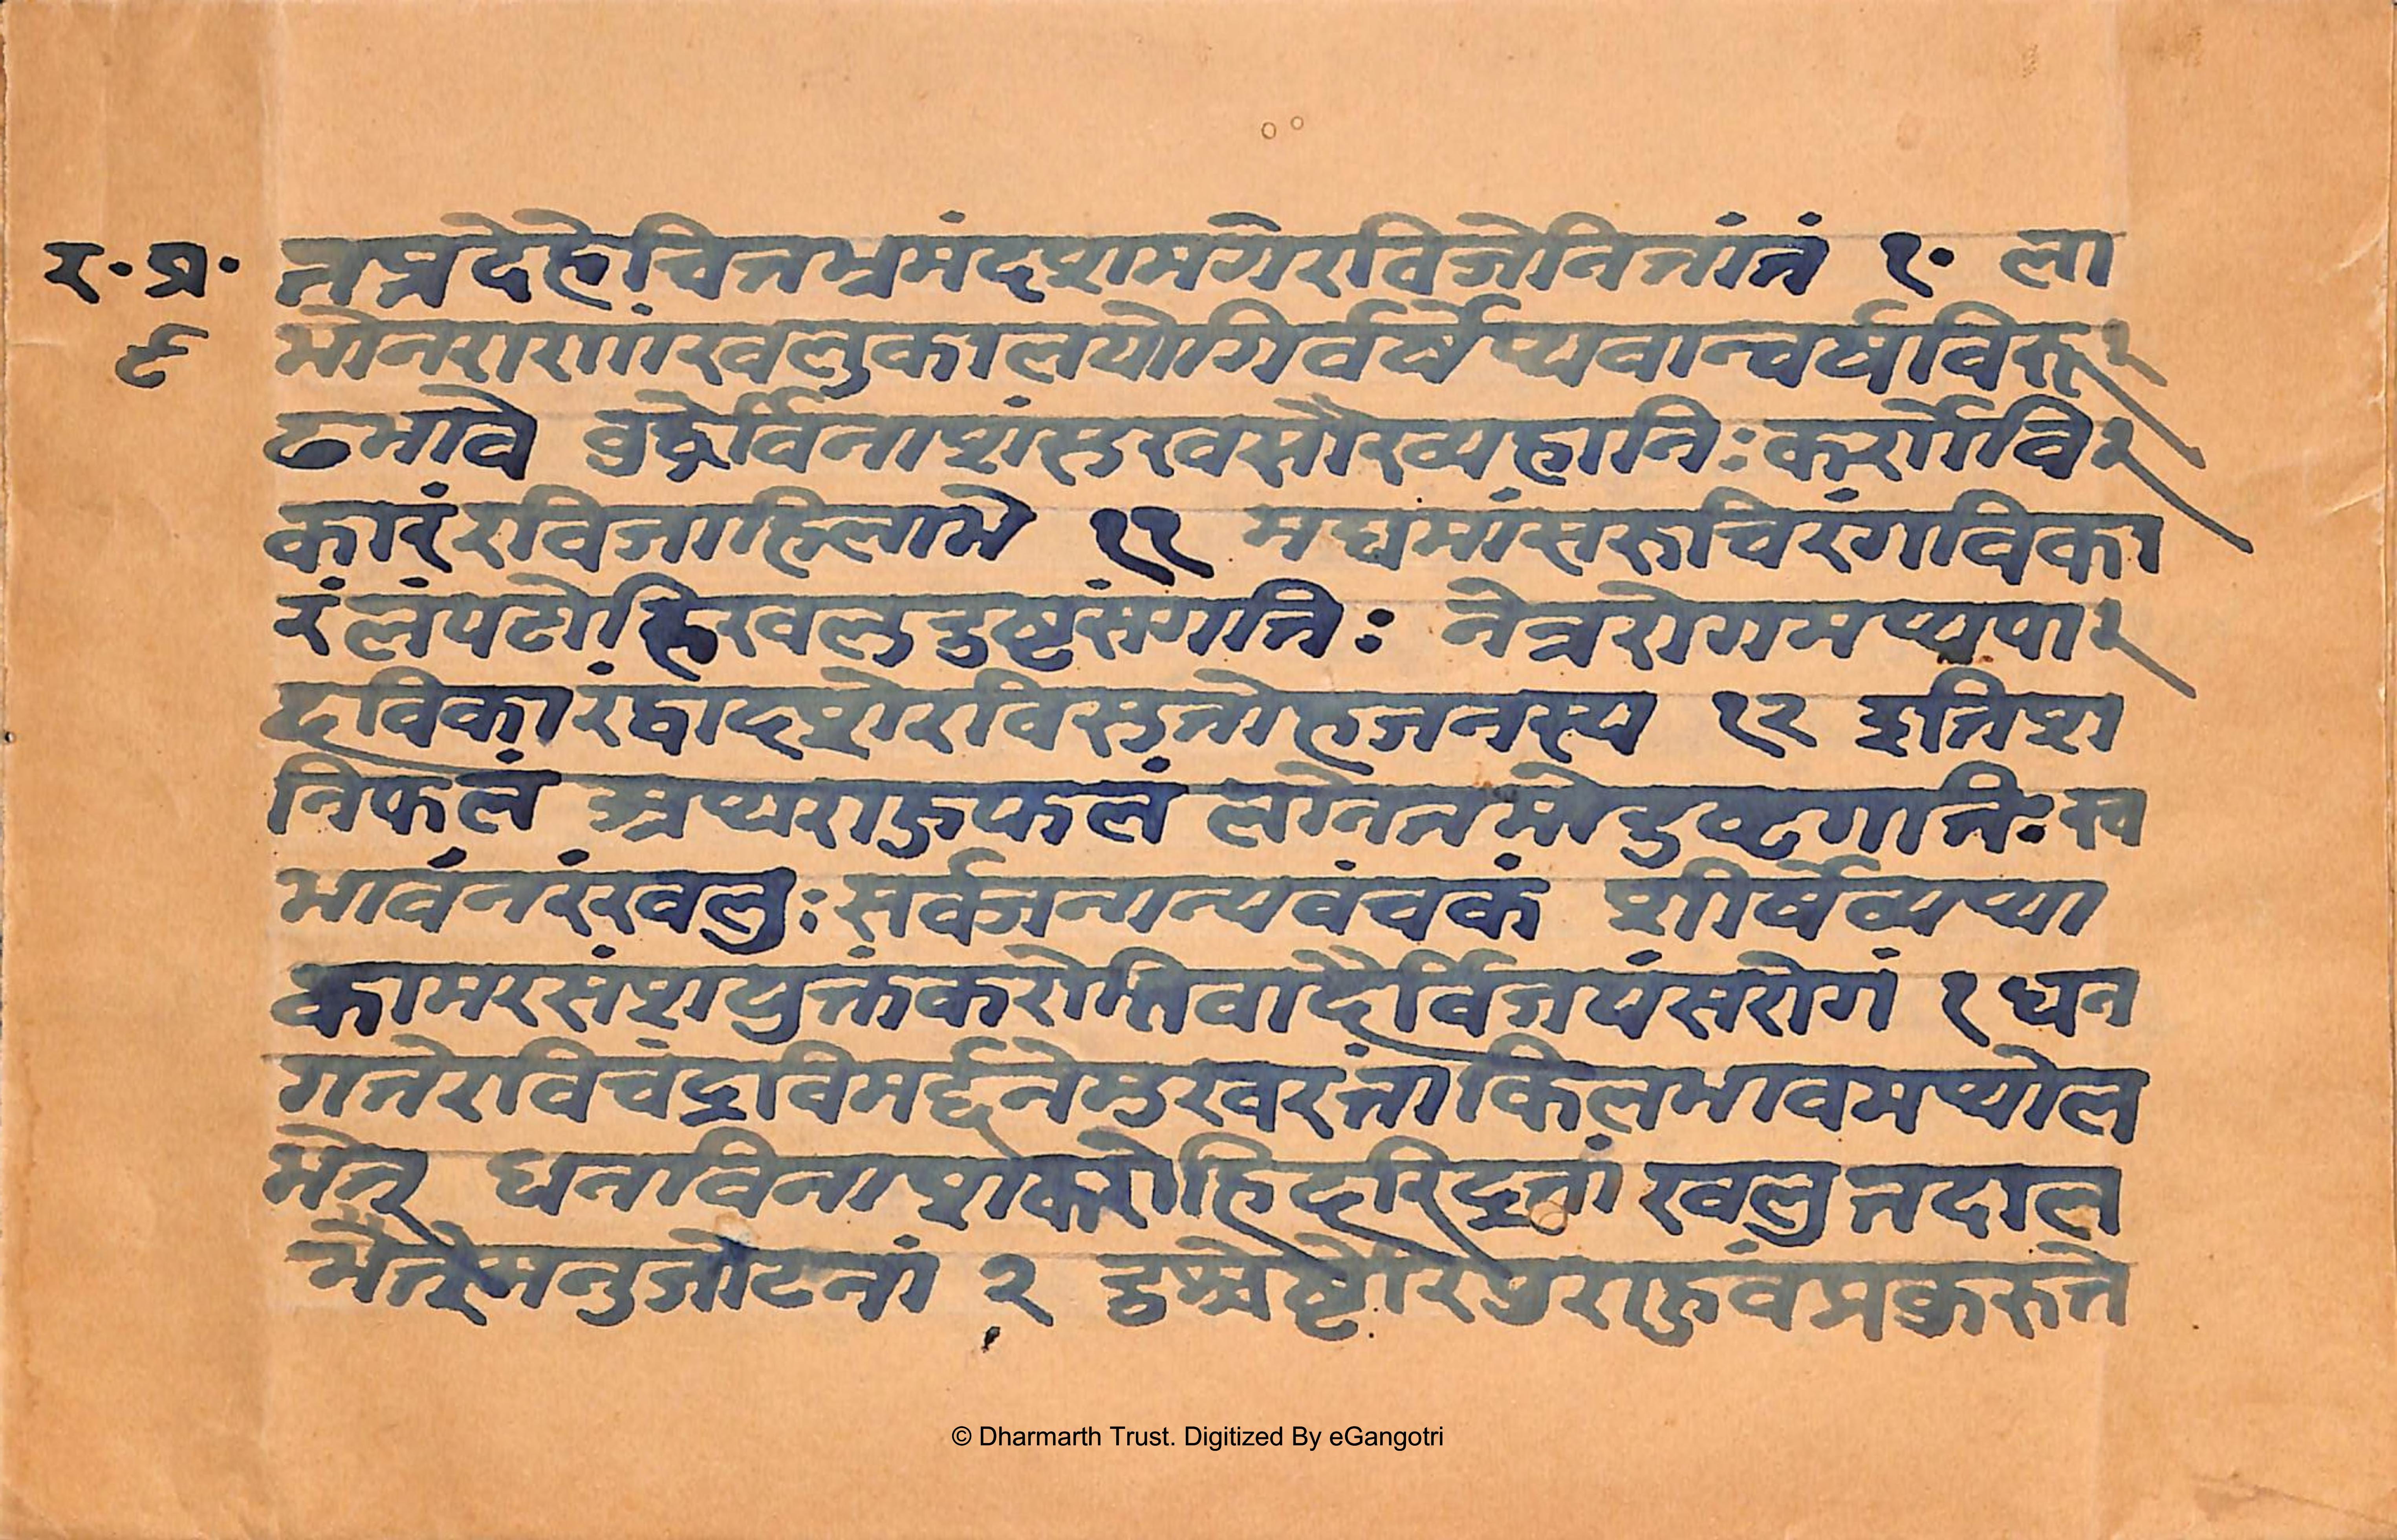 र·प्र· तत्रदेहेचित्तभ्रमंदशमगेरविजेनितांतं १० ला
९ भोनराणांखलुकालयोगिर्वर्षेप्यवान्वर्यविरू
ढभावे वुद्धेर्विनाशंसुखसौख्यहानिःकर्णेवि
कारंरविजाहिलाभे ११ मद्यमांसरुचिरंगविका
रंलंपटोहिखलुदुष्टसंगतिः नेत्ररोगमप्यपा
दविकारंद्वादशेरविसुतोहजनस्य १२ इतिश
निफलं अथराहुफलं लग्नेतमोदुष्टगतिःस्व
भावंनरंखलुःसर्वजनान्यवंचकं शीर्षेव्यथा
कामरसंशयुक्तंकरोतिवादैर्विजयंसरोगं १ धन
गतेरविचंद्रविमर्द्दनेमुखरतांकिलभावमथोल
भेत् धनविनाशकरोहिदरिद्रतां खलु तदाल
भैत्मनुजोटनां २ दुश्चेष्टेरिपुराहुवंप्रकुरुते
© Dharmarth Trust. Digitized By eGangotri